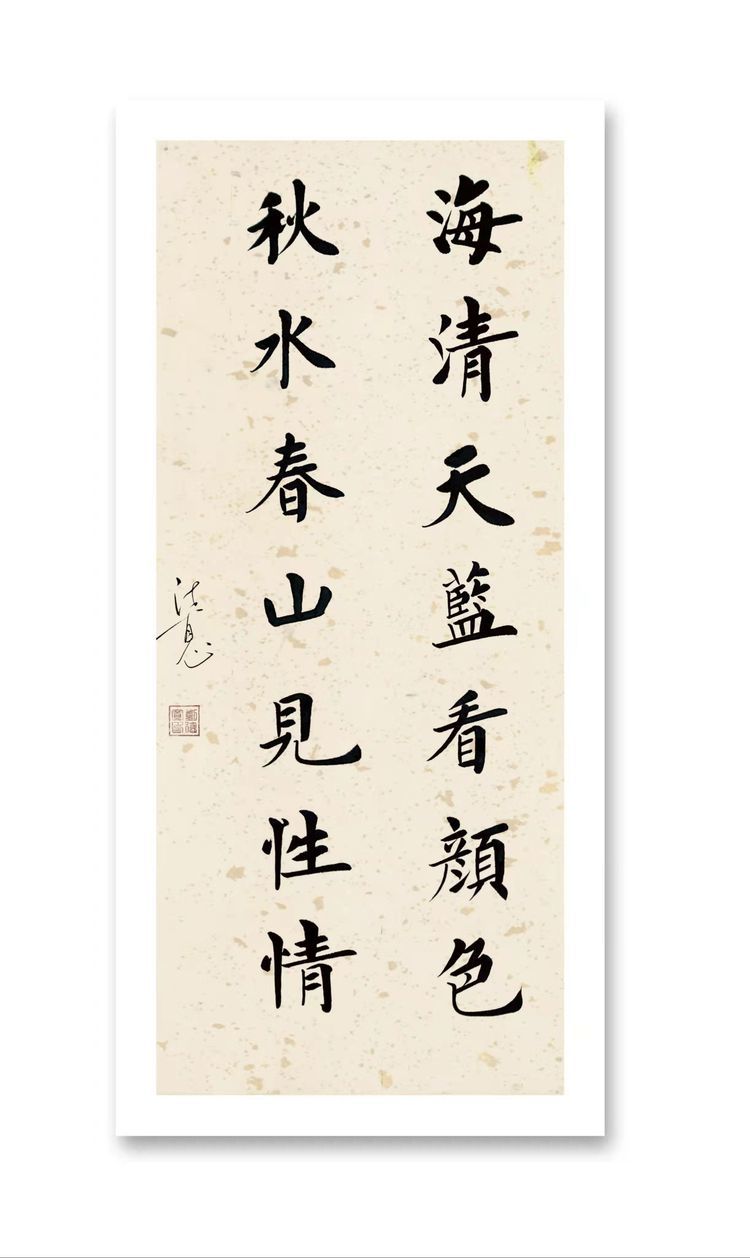 海清天藍看顔色
秋水春山見性情